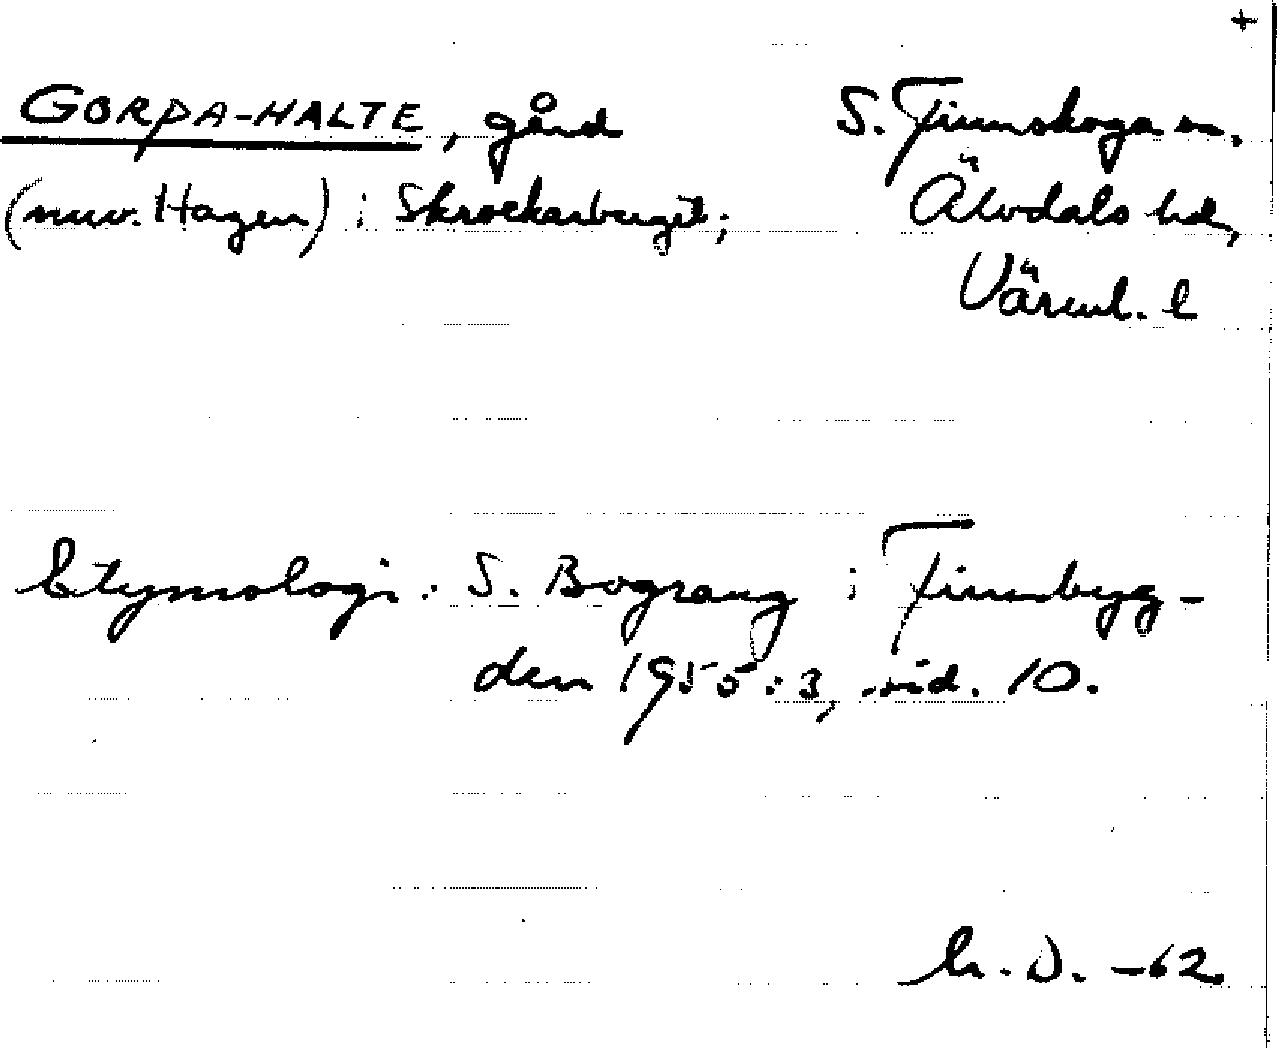 +
GORPA-HALTE, gård
(nuv. Hagen) i Skråckarberget;
S. Finnskoga sn,
Älvdals hd,
Värml. l
Etymologi: S. Bograng i Finnbyg-
den 1955:3, sid. 10.
D. -62